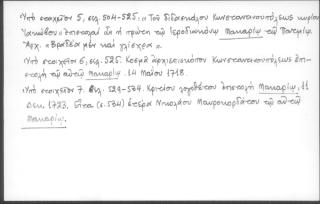 Ὑπὸ στοιχεῖον 5, σελ. 504-525: «Τοῦ διδασκάλου Κωνσταντινουπόλεως κυρίου
Ἰακώβου ἐπιστολαὶ ὧν ἡ πρώτη τῷ Ἱεροδιακόνῳ Μακαρίῳ τῷ Πατμίῳ.
Ἀρχ. «Βραδέα μὲν καὶ γλίσχρα».
Ὑπὸ στοιχεῖον 6, σελ. 525. Κοσμᾶ ἀρχιεπισκόπου Κωνσταντινουπόλεως ἐπι-
στολὴ τῷ αὐτῷ Μακαρίῳ. 14 Μαΐου 1718.
Ὑπὸ στοιχεῖον 7. σελ. 529-534. Κριτίου λογοθέτου ἐπιστολὴ Μακαρίῳ, 11
Δεκ. 1723. Εἶτα (σ. 534) ἑτέρα Νικολάου Μαυροκορδάτου τῷ αὐτῷ
Μακαρίῳ.